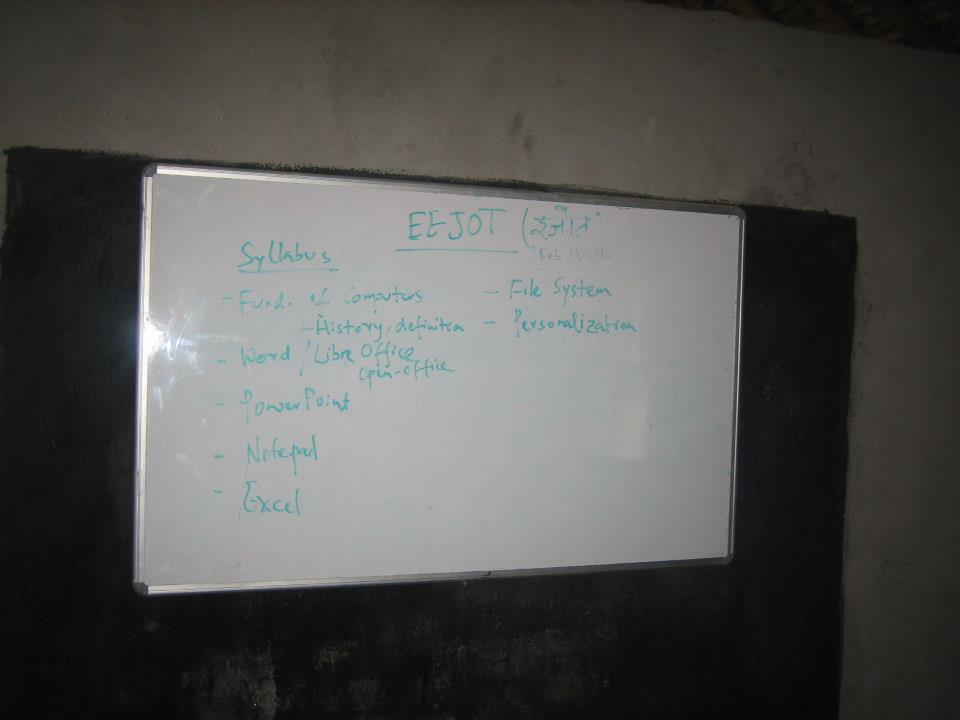 EEJOT (इजोत)
Syllabus
- Fund. of Computers
- History, definition
- Word / Libre Office
Open-office
- PowerPoint
- Notepad
- Excel
- File System
- Personalization